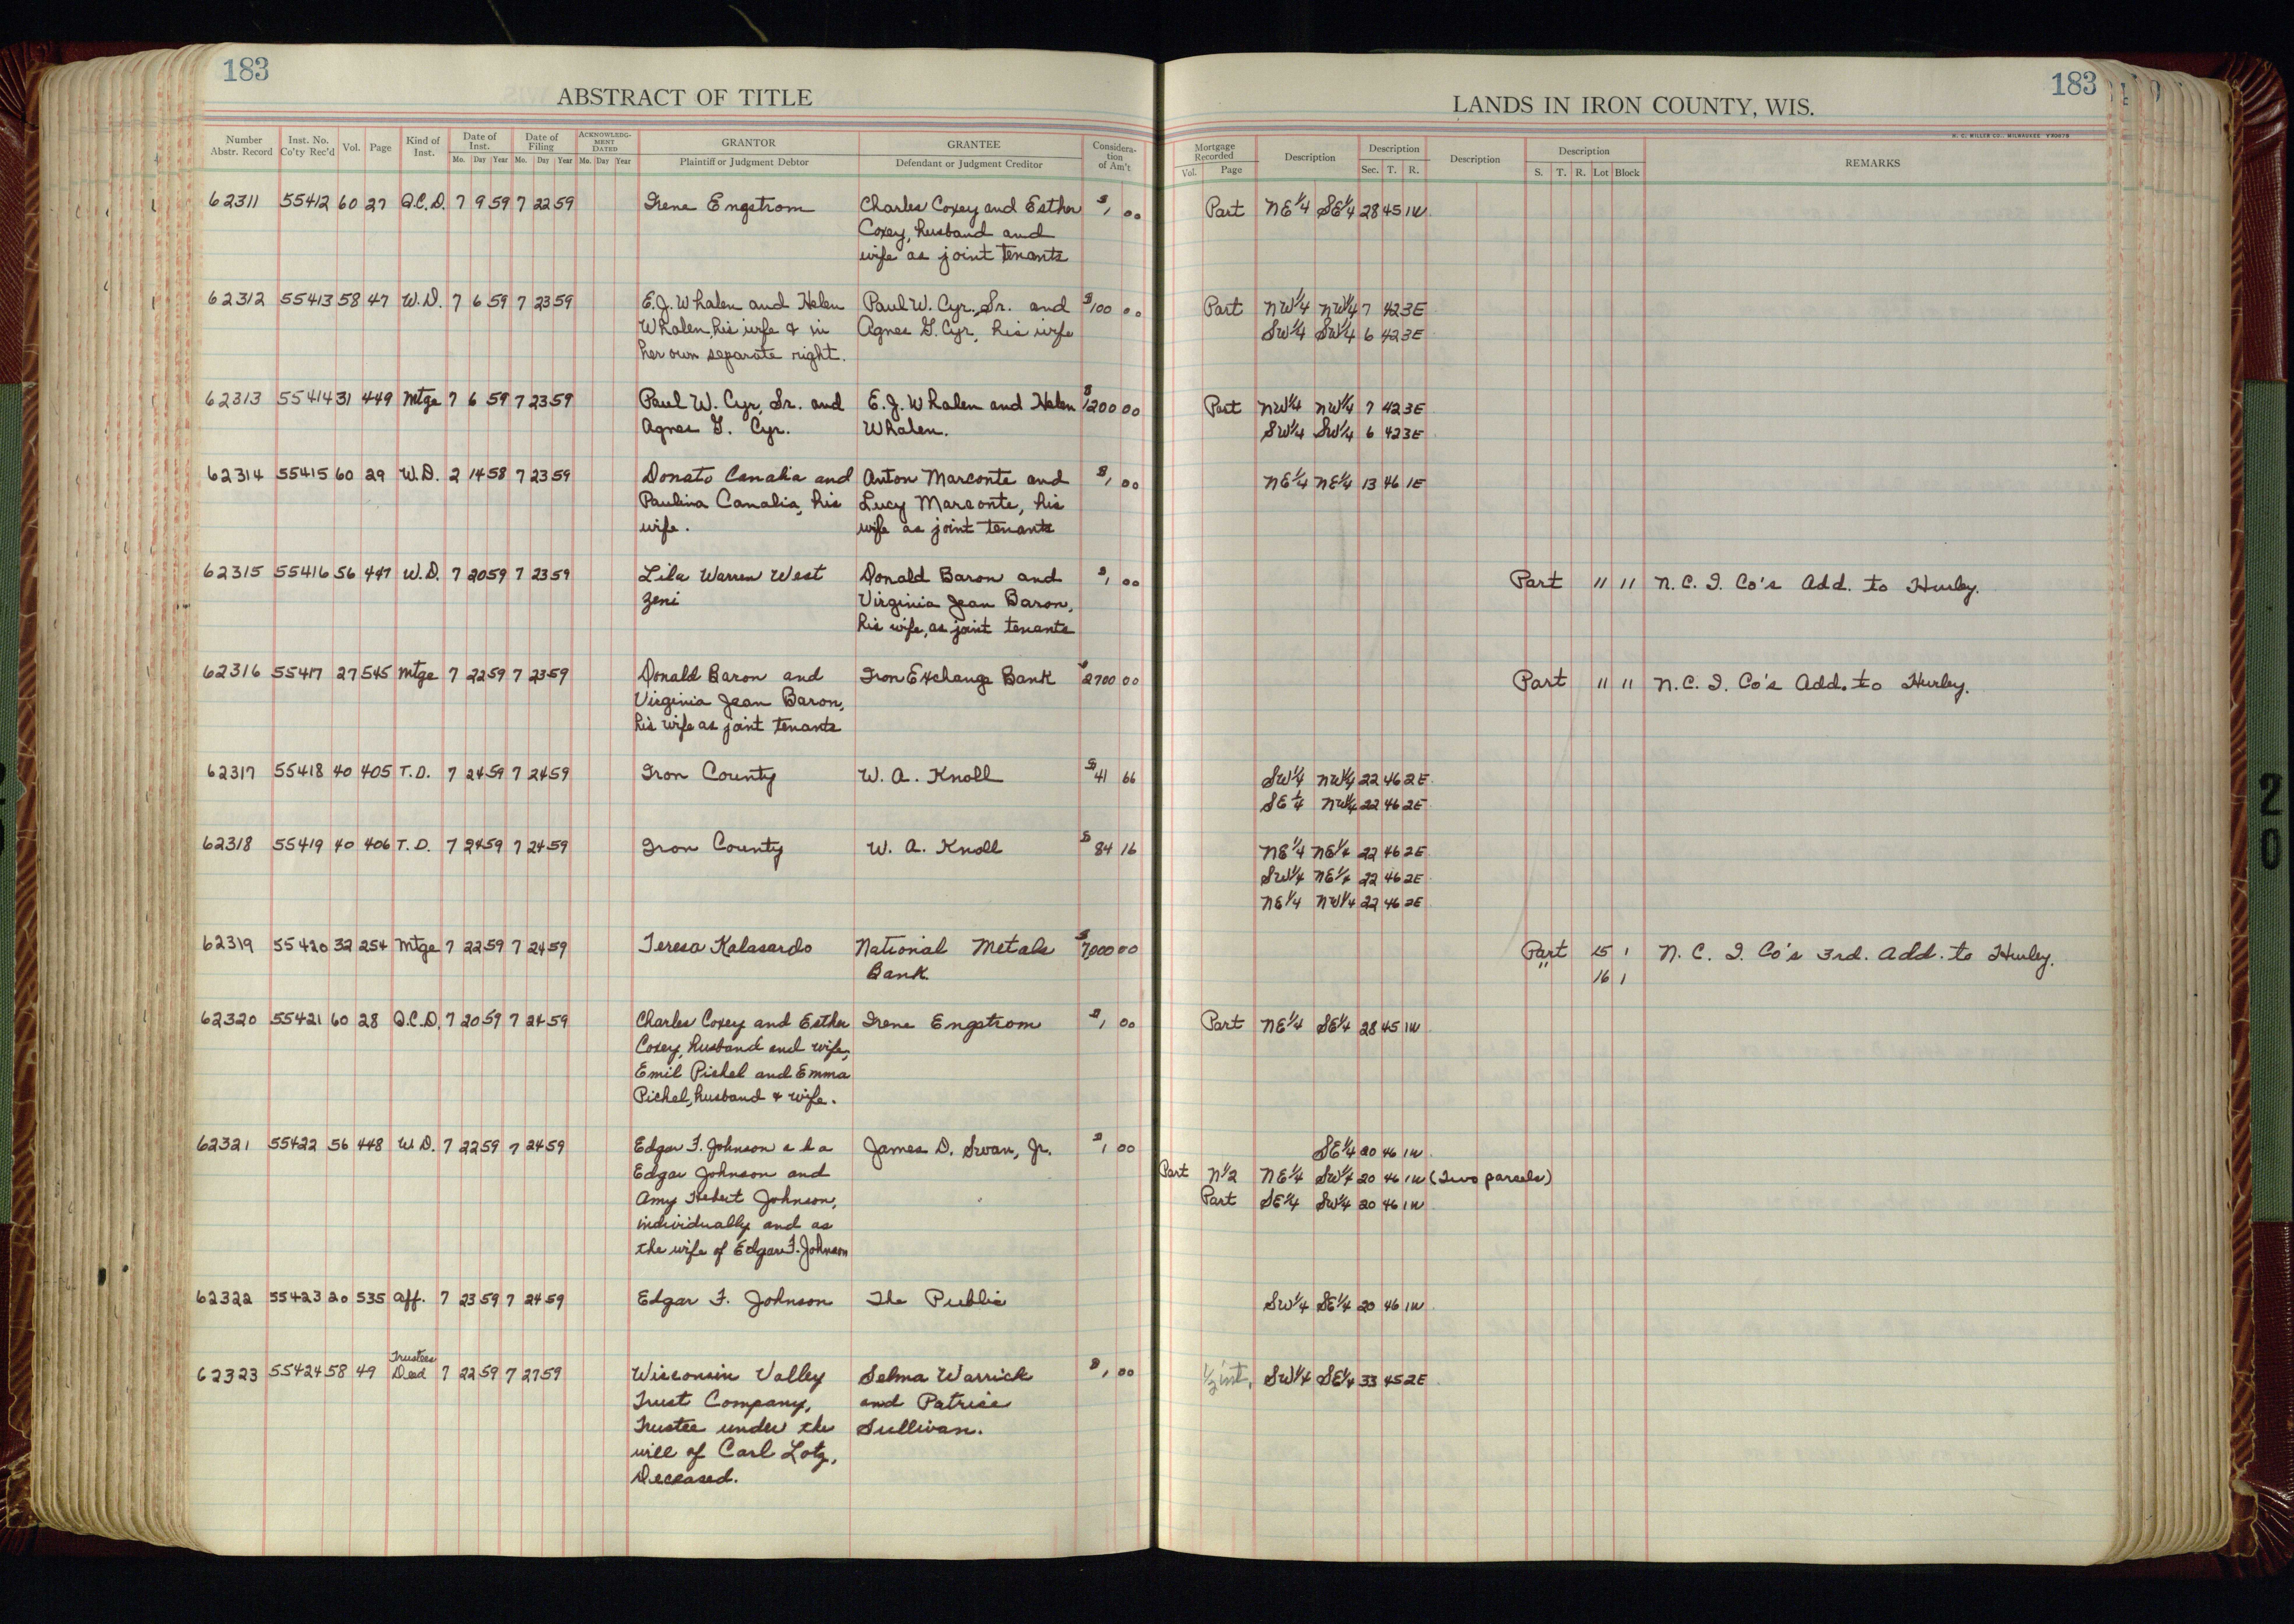 183
ABSTRACT OF TITLE
183
LANDS IN IRON COUNTY, WIS.
Number Abstr. Record | Inst. No. Co'ty Rec'd | Vol. | Page | Kind of Inst. | Date of Inst. Mo. Day Year | Date of Filing Mo. Day Year | ACKNOWLEDGMENT DATED Mo. Day Year | GRANTOR Plaintiff or Judgment Debtor | GRANTEE Defendant or Judgment Creditor | Consideration of Am't | Mortgage Recorded Vol. Page | Description | Description Sec. T. R. | Description | Description S. T. R. Lot Block | REMARKS
62311 55412 60 27 Q.C.D. 7 9 59 7 22 59 Irene Engstrom Charles Coxey and Esther $1 00 Part NE1/4 SE1/4 28 45 1W
Coxey, husband and
wife as joint tenants
62312 55413 58 47 W.D. 7 6 59 7 23 59 E.J. Whalen and Helen Paul W. Cyr, Sr. and $100 00 Part NW1/4 NW1/4 7 42 3E
Whalen, his wife & in Agnes G. Cyr, his wife SW1/4 SW1/4 6 42 3E
her own separate right.
62313 55414 31 449 Mtge 7 6 59 7 23 59 Paul W. Cyr, Sr. and E.J. Whalen and Helen $1200 00 Part NW1/4 NW1/4 7 42 3E
Agnes G. Cyr. Whalen. SW1/4 SW1/4 6 42 3E
62314 55415 60 29 W.D. 2 14 58 7 23 59 Donato Canalia and Anton Marconte and $1 00 NE1/4 NE1/4 13 46 1E
Paulina Canalia, his Lucy Marconte, his
wife. wife as joint tenants
62315 55416 56 447 W.D. 7 20 59 7 23 59 Lila Warren West Donald Baron and $1 00 Part 11 11 N.C.I. Co's Add. to Hurley.
Zeni Virginia Jean Baron,
his wife, as joint tenants
62316 55417 27 545 Mtge 7 22 59 7 23 59 Donald Baron and Iron Exchange Bank $2700 00 Part 11 11 N.C.I. Co's Add. to Hurley.
Virginia Jean Baron,
his wife as joint tenants
62317 55418 40 405 T.D. 7 24 59 7 24 59 Iron County W. A. Knoll $41 66 SW1/4 NW1/4 22 46 2E
SE1/4 NW1/4 22 46 2E
62318 55419 40 406 T.D. 7 24 59 7 24 59 Iron County W. A. Knoll $84 16 NE1/4 NE1/4 22 46 2E
SW1/4 NE1/4 22 46 2E
NE1/4 NW1/4 22 46 2E
62319 55420 32 254 Mtge 7 22 59 7 24 59 Teresa Kalasardo National Metals $7,000 00 Part 15 1 N.C.I. Co's 3rd. Add. to Hurley.
Bank " 16 1
62320 55421 60 28 Q.C.D. 7 20 59 7 24 59 Charles Coxey and Esther Irene Engstrom $1 00 Part NE1/4 SE1/4 28 45 1W
Coxey, husband and wife,
Emil Pichel and Emma
Pichel, husband & wife.
62321 55422 56 448 W.D. 7 22 59 7 24 59 Edgar F. Johnson a k a James D. Swan, Jr. $1 00 SE1/4 20 46 1W
Edgar Johnson and Part N1/2 NE1/4 SW1/4 20 46 1W (Two parcels)
Amy Hebert Johnson, Part SE1/4 SW1/4 20 46 1W
individually and as
the wife of Edgar F. Johnson
62322 55423 20 535 Aff. 7 23 59 7 24 59 Edgar F. Johnson The Public SW1/4 SE1/4 20 46 1W
62323 55424 58 49 Trustees Deed 7 22 59 7 27 59 Wisconsin Valley Selma Warrick $1 00 1/2 int. SW1/4 SE1/4 33 45 2E
Trust Company, and Patrice
Trustee under the Sullivan.
will of Carl Lotz,
Deceased.
20